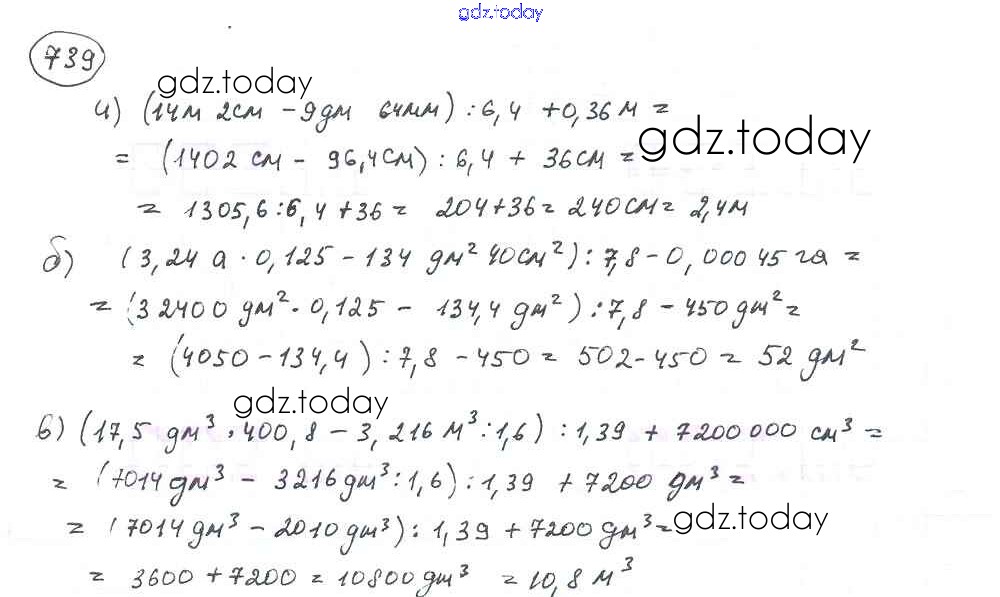 gdz.today
739
gdz.today
а) (14м 2см - 9дм 64мм) : 6,4 + 0,36 м =
gdz.today
= (1402 см - 96,4см) : 6,4 + 36см =
= 1305,6 : 6,4 + 36 = 204 + 36 = 240см = 2,4м
б) (3,24 а · 0,125 - 134 дм² 40см²) : 7,8 - 0,00045 га =
= (32400 дм² · 0,125 - 134,4 дм²) : 7,8 - 450 дм² =
= (4050 - 134,4) : 7,8 - 450 = 502 - 450 = 52 дм²
gdz.today
в) (17,5 дм³ · 400,8 - 3,216 м³ : 1,6) : 1,39 + 7200 000 см³ =
= (7014 дм³ - 3216 дм³ : 1,6) : 1,39 + 7200 дм³ =
= (7014 дм³ - 2010 дм³) : 1,39 + 7200 дм³ =
gdz.today
= 3600 + 7200 = 10800 дм³ = 10,8 м³